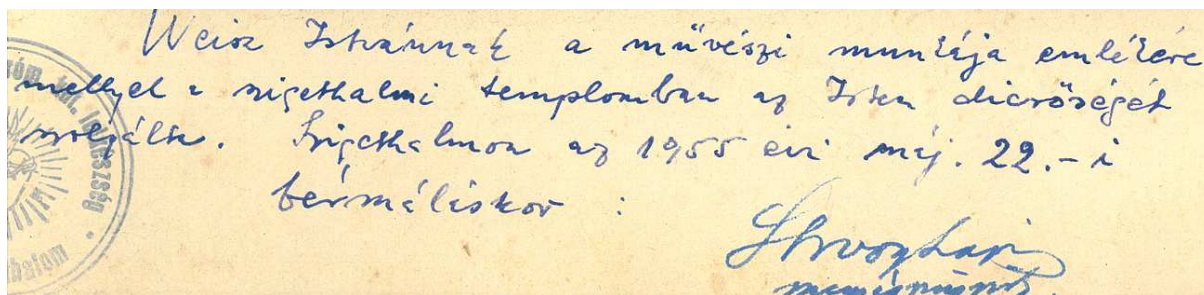 Weisz Istvánnak a művészi munkája emlékére
mellyel a szigethalmi templomban az Isten dicsőségét
szolgálta. Szigethalmon az 1955 évi máj. 22.-i
bérmáláskor :
Shvoy Lajos
róm. kat. lelkészség